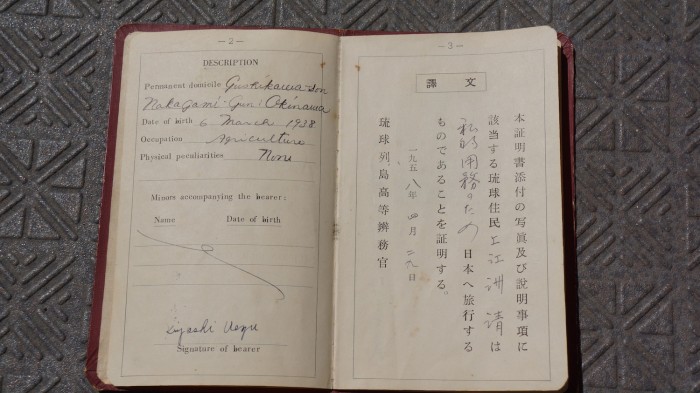 — 2 —
DESCRIPTION
Permanent domicile Gushikawa-son
Nakagami-Gun, Okinawa
Date of birth 6 March 1938
Occupation Agriculture
Physical peculiarities None
Minors accompanying the bearer:
Name Date of birth
Kiyoshi Uezu
Signature of bearer
— 3 —
譯文
本証明書添付の写眞及び説明事項に
該当する琉球住民上江洲清は
私的用務のため日本へ旅行する
ものであることを証明する。
一九五八年四月二九日
琉球列島高等辨務官